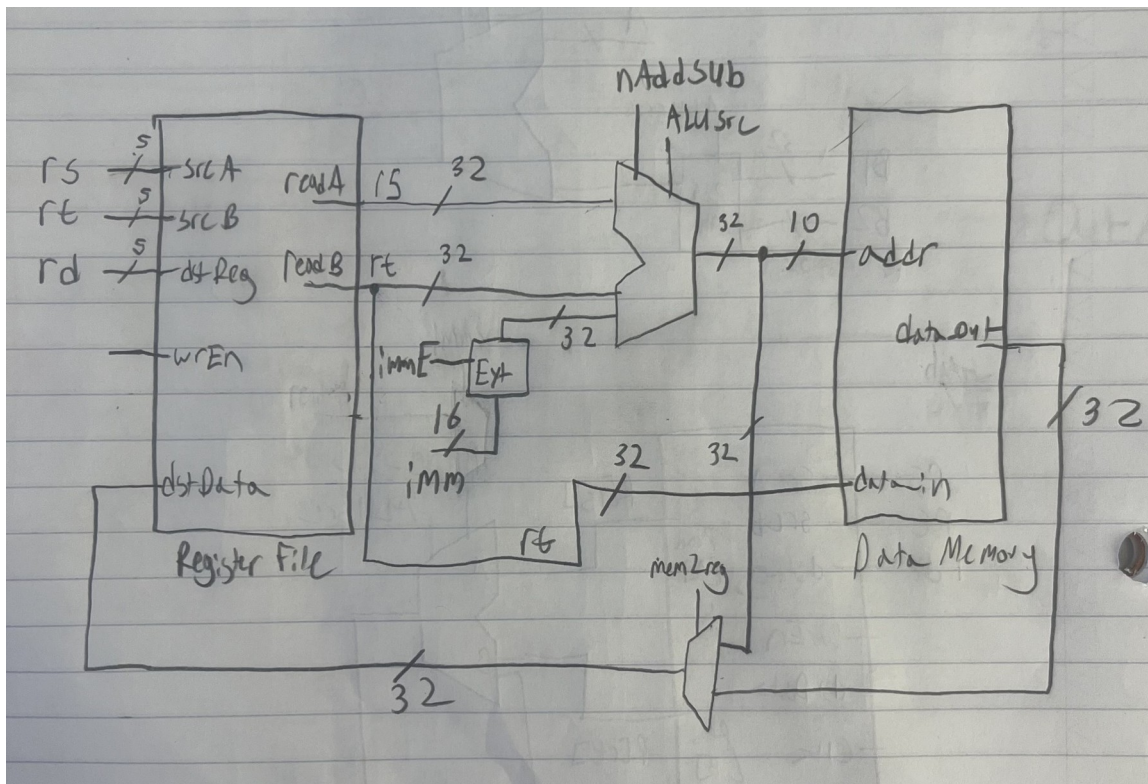 nAddSub
ALUSrc
rs 5 srcA
rt 5 srcB
rd 5 dstReg
wrEn
dstData
Register File
readA rs 32
readB rt 32
32
immE Ext
16
imm
rt 32
32 10 addr
data_out
32
32
data_in
Data Memory
mem2reg
32